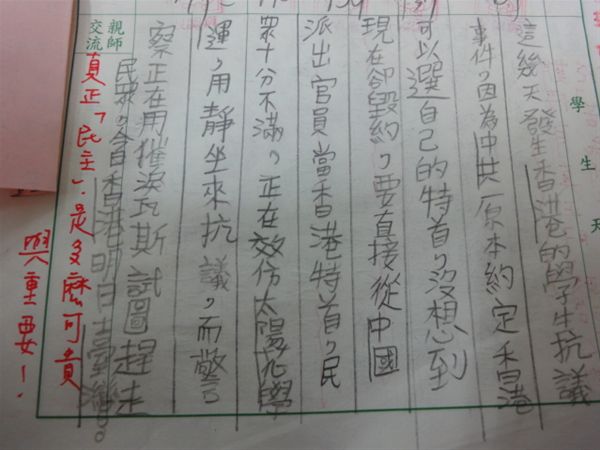 學生天
這幾天發生香港的學生抗議
事件，因為中共原本約定香港
可以選自己的特首，沒想到
現在卻毀約，要直接從中國
派出官員當香港特首，民
眾十分不滿，正在效仿太陽花學
運，用靜坐來抗議，而警
察正在用摧淚瓦斯試圖趕走
民眾，今日香港明日臺灣。
親師交流
真正「民主」是多麼可貴
與重要！